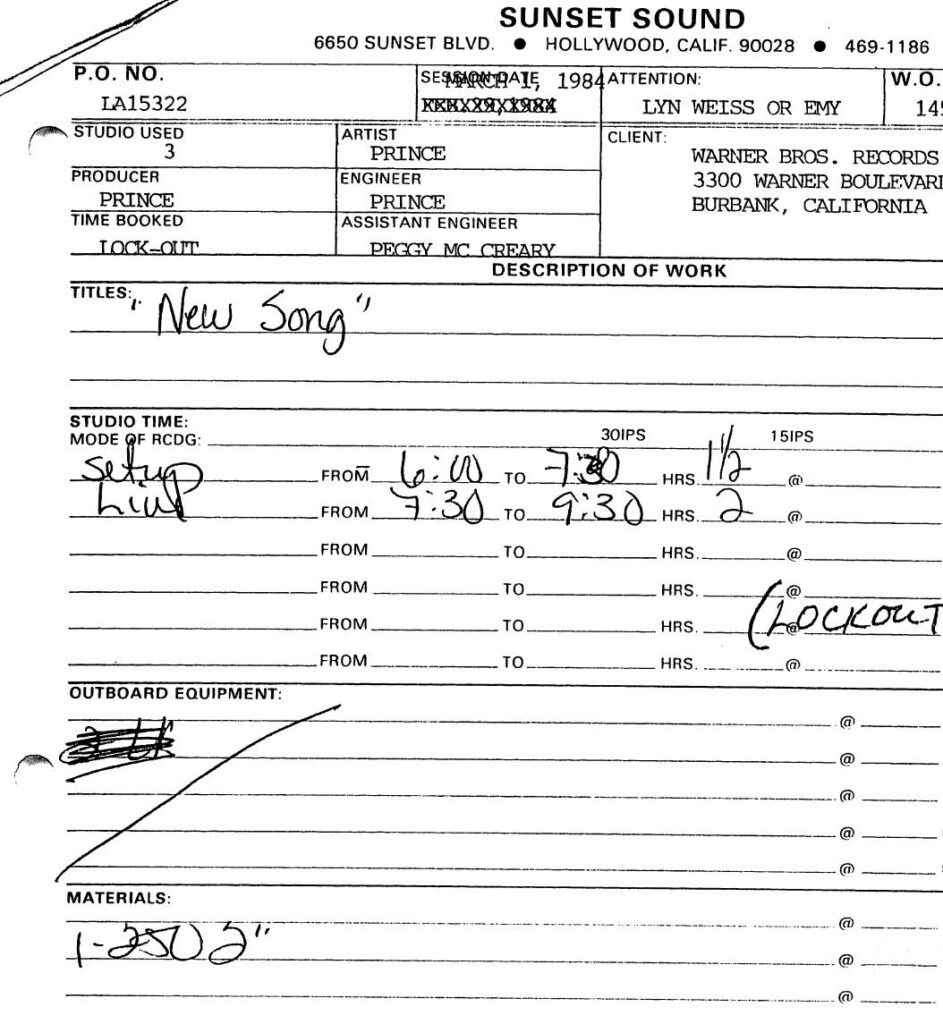 SUNSET SOUND
6650 SUNSET BLVD. ● HOLLYWOOD, CALIF. 90028 ● 469-1186
P.O. NO. SESSION DATE MARCH 1, 1984 ATTENTION: W.O.
LA15322 LYN WEISS OR EMY 145
STUDIO USED ARTIST CLIENT:
3 PRINCE WARNER BROS. RECORDS
PRODUCER ENGINEER 3300 WARNER BOULEVARD
PRINCE PRINCE BURBANK, CALIFORNIA
TIME BOOKED ASSISTANT ENGINEER
LOCK-OUT PEGGY MC CREARY
DESCRIPTION OF WORK
TITLES: "New Song"
STUDIO TIME:
MODE OF RCDG: 30IPS 15IPS
Setup FROM 6:00 TO 7:30 HRS. 1 1/2 @
Live FROM 7:30 TO 9:30 HRS. 2 @
FROM TO HRS. @
FROM TO HRS. @
FROM TO HRS. @ (LOCKOUT
FROM TO HRS. @
OUTBOARD EQUIPMENT:
@
@
@
@
@
MATERIALS:
@
1-250 2" @
@